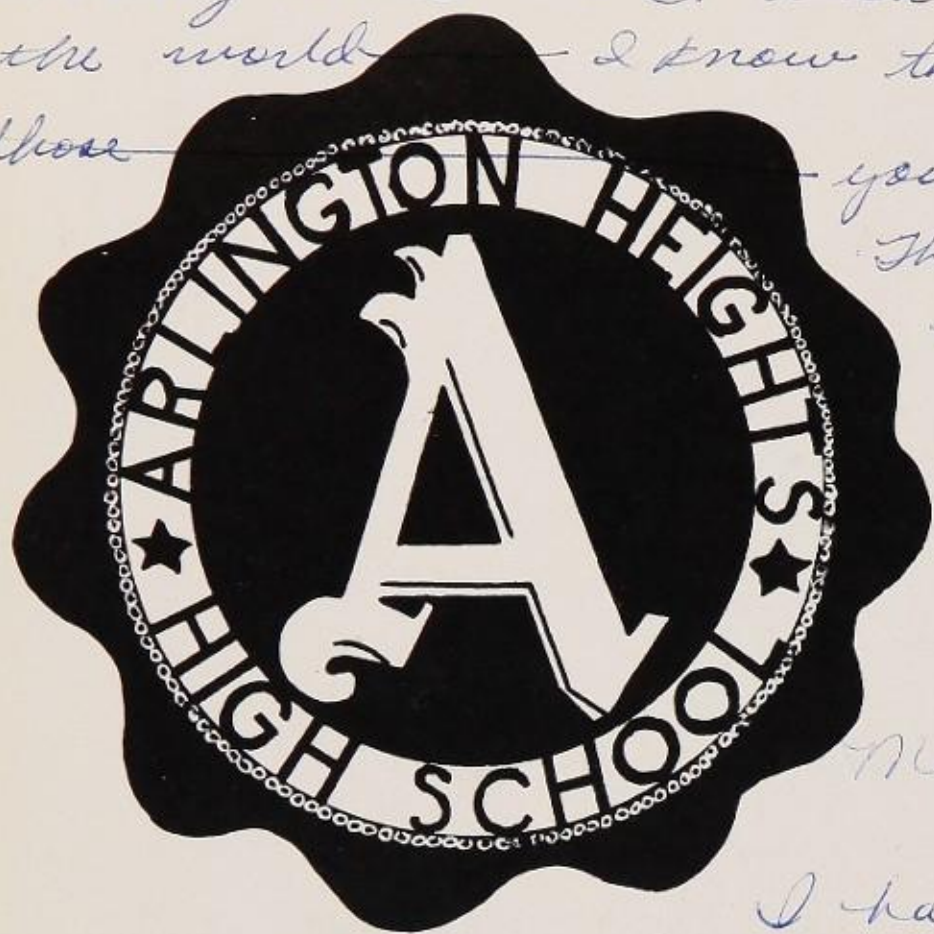 the world I know th
those you
Th
ARLINGTON HEIGHTS
A
★ HIGH SCHOOL ★
M
I ha